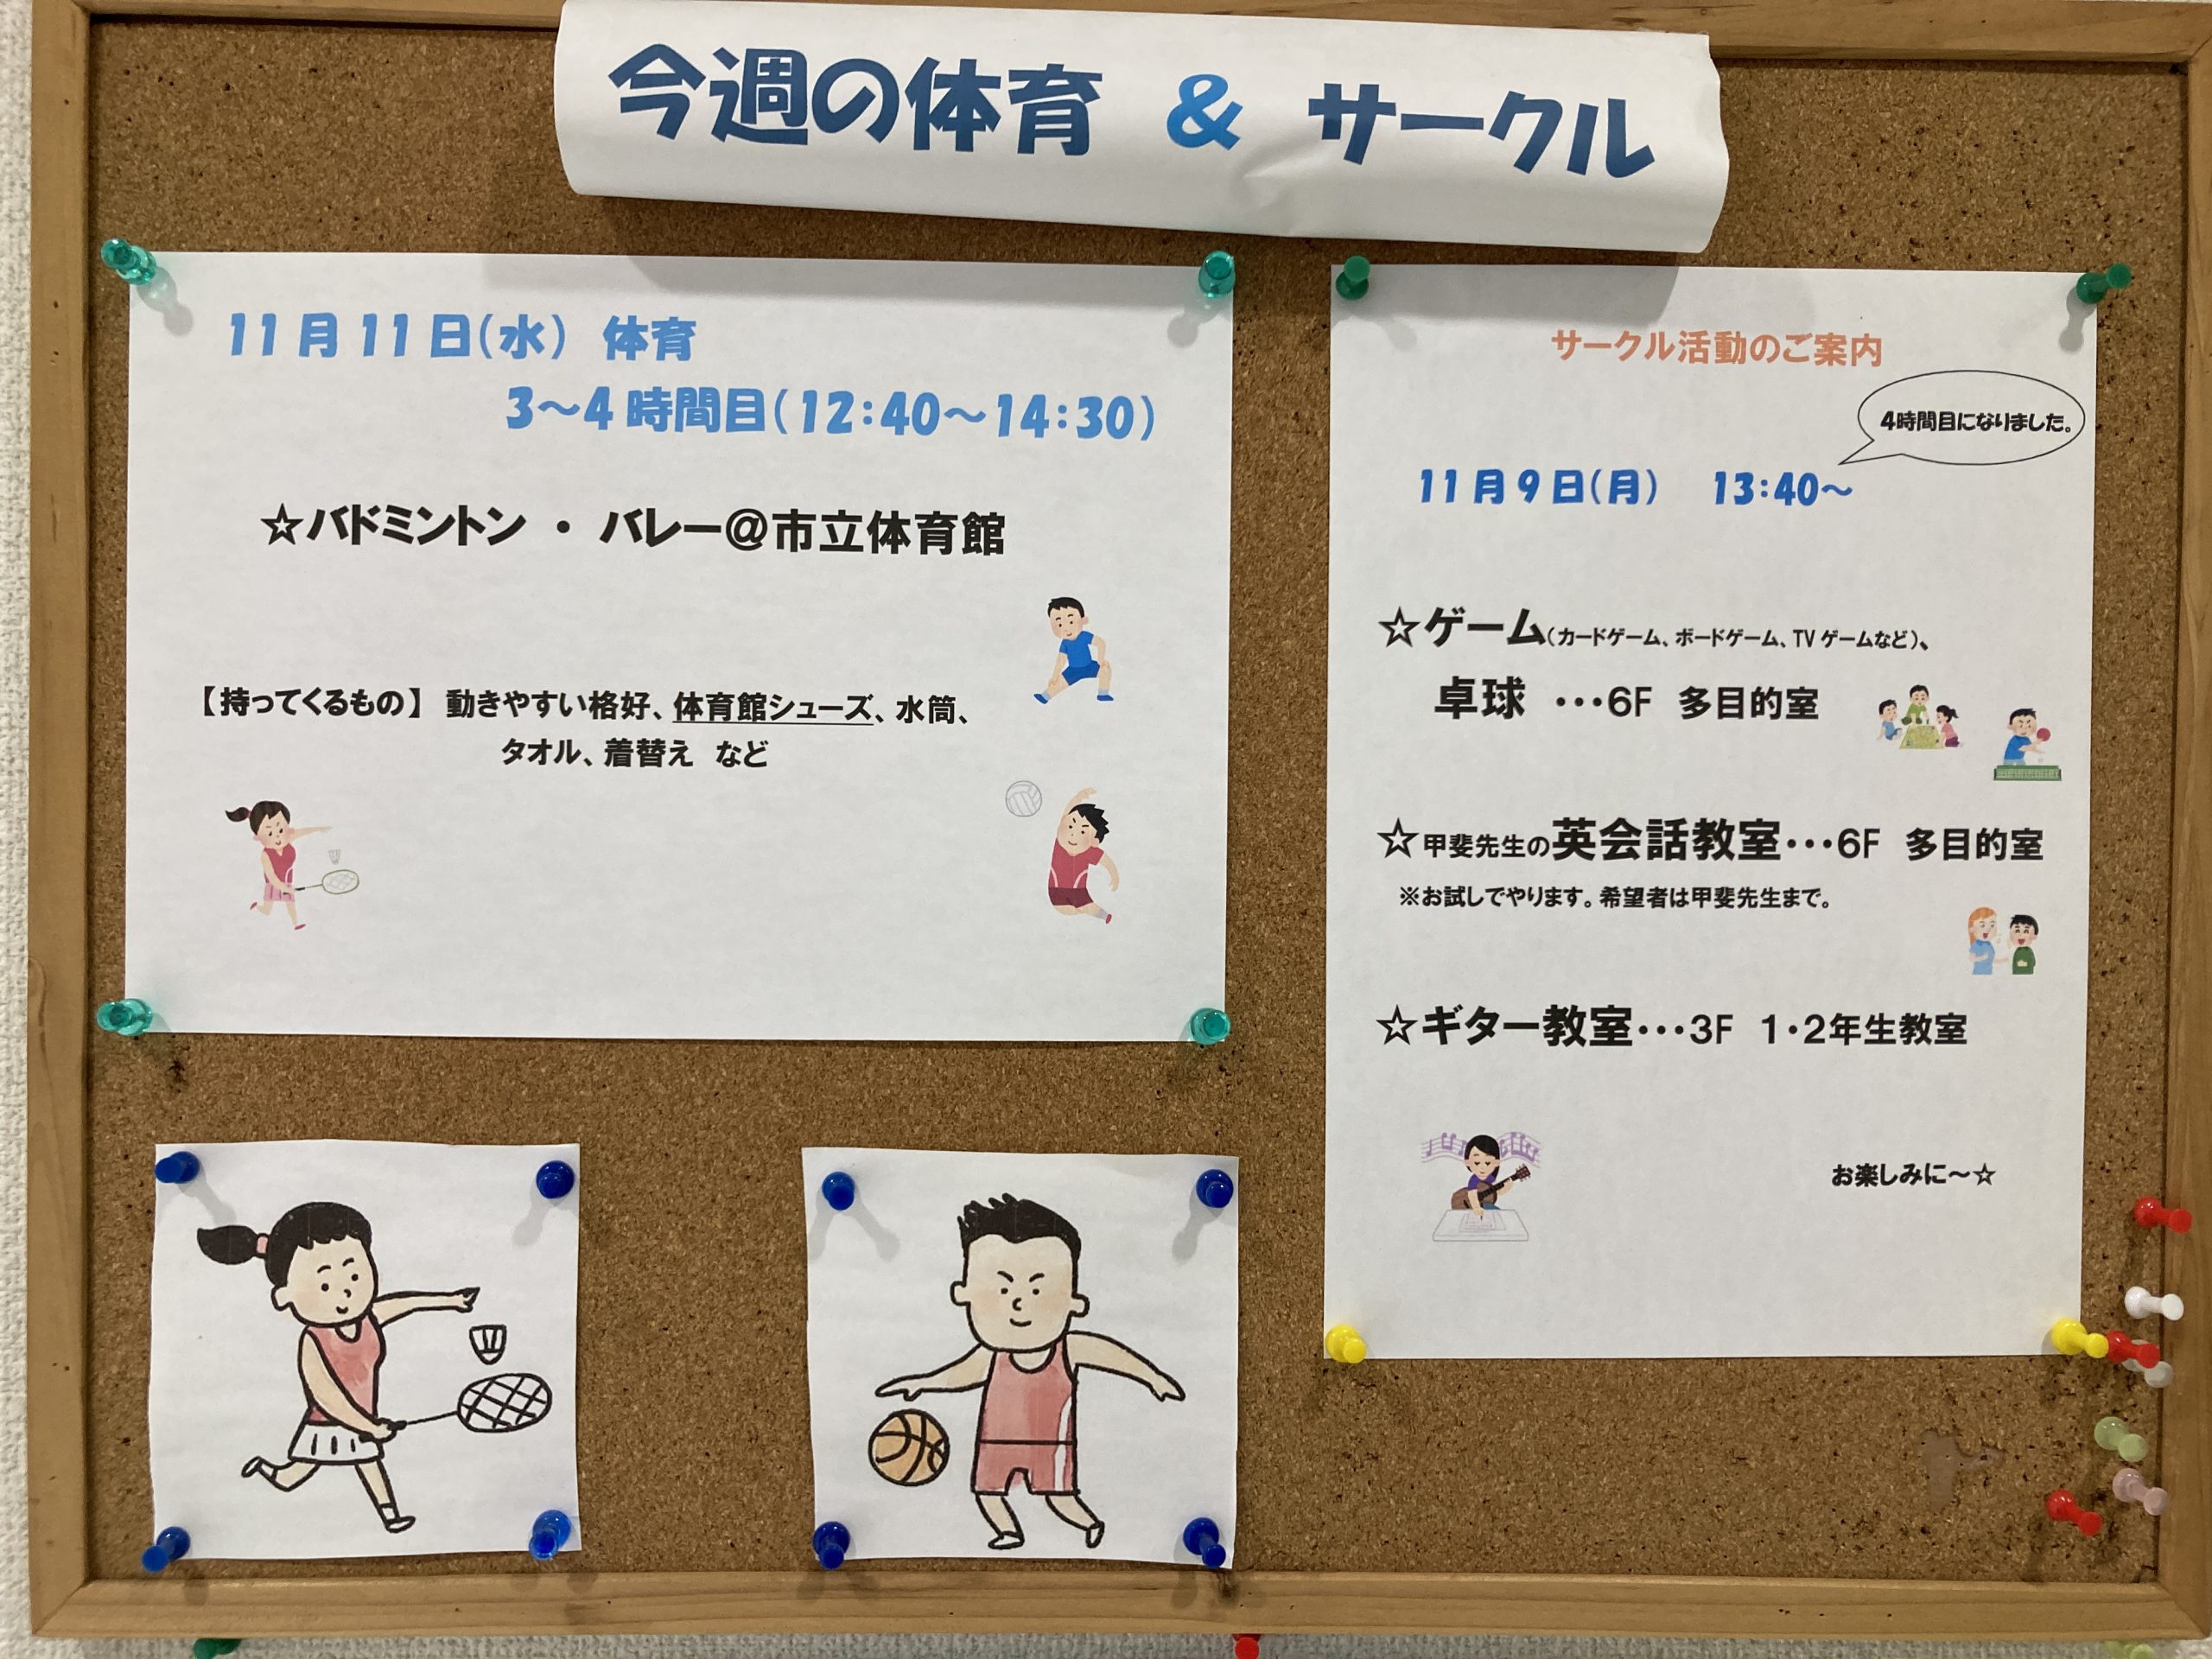 今週の体育 & サークル
11月11日(水) 体育
3～4時間目(12:40～14:30)
☆バドミントン ・ バレー@市立体育館
【持ってくるもの】 動きやすい格好、体育館シューズ、水筒、
タオル、着替え など
サークル活動のご案内
4時間目になりました。
11月9日(月) 13:40～
☆ゲーム(カードゲーム、ボードゲーム、TVゲームなど)、
卓球 ・・・6F 多目的室
☆甲斐先生の英会話教室・・・6F 多目的室
※お試しでやります。希望者は甲斐先生まで。
☆ギター教室・・・3F 1・2年生教室
お楽しみに～☆